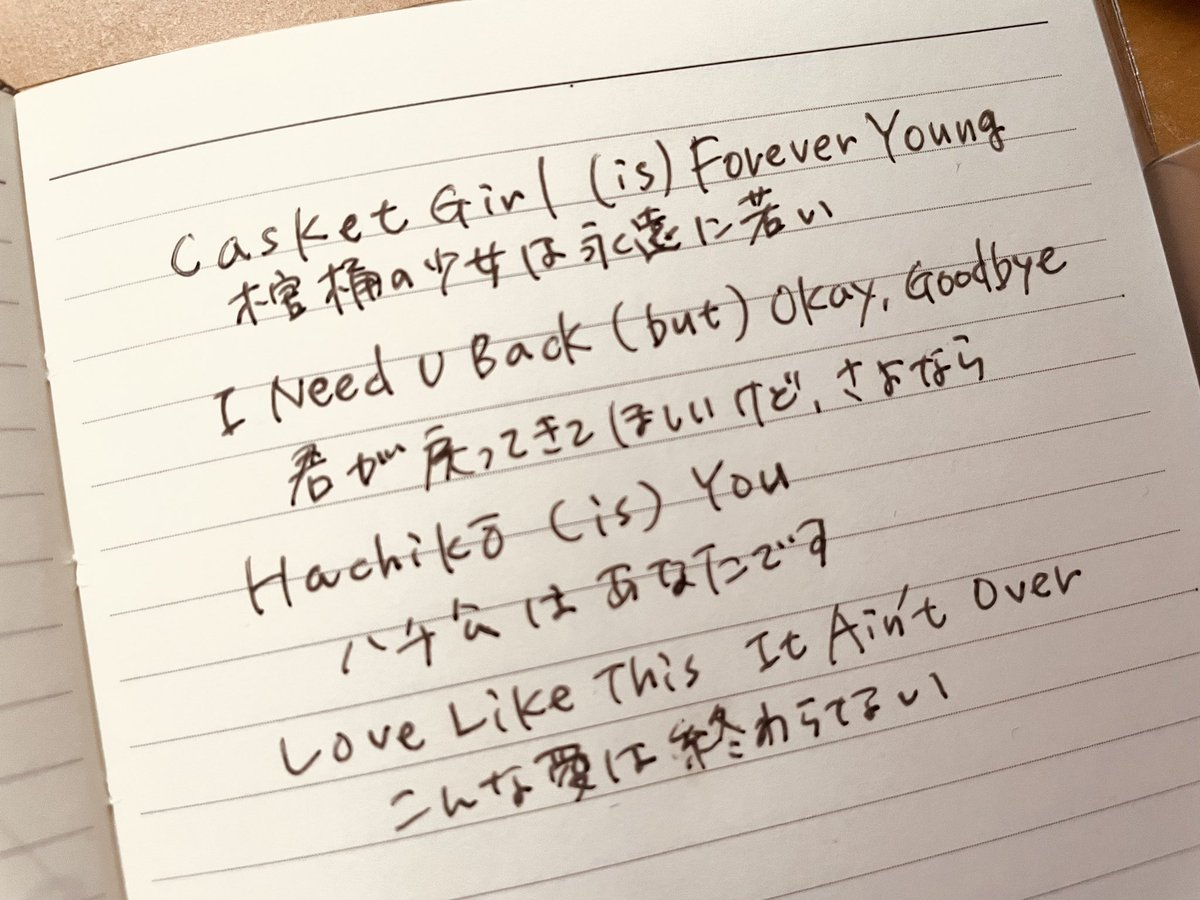 Casket Girl (is) Forever Young
棺桶の少女は永遠に若い
I Need U Back (but) Okay, Goodbye
君が戻ってきてほしいけど、さよなら
Hachikō (is) You
ハチ公はあなたです
Love Like This It Ain't Over
こんな愛は終わらてない